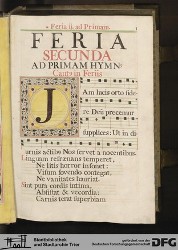 Feria ii. ad Primam
FERIA
SECUNDA
AD PRIMAM HYMN9
Cantus in Feriis
JAm lucis orto side-
re Deũ precemur
supplices: Ut in di-
urnis actibus Nos servet a nocentibus.
Linguam refrænans temperet,
Ne litis horror insonet:
Visum fovendo contegat,
Ne vanitates hauriat.
Sint pura cordis intima,
Absistat & vecordia:
Carnis terat superbiam
Stadtbibliothek
und Stadtarchiv Trier
gefördert von der
Deutschen Forschungsgemeinschaft
DFG